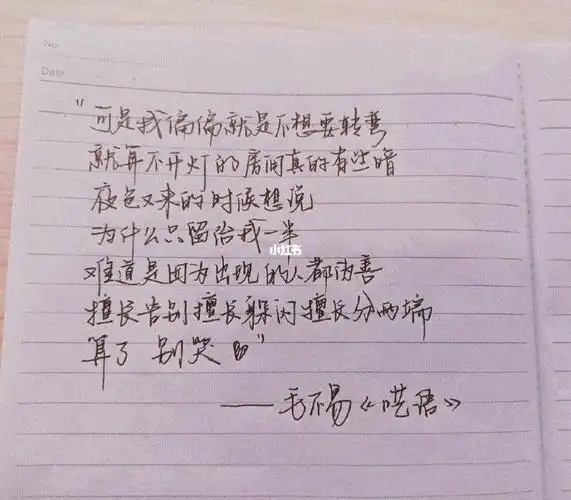 No.
Date
"可是我偏偏就是不想要转弯
就算不开灯的房间真的有些暗
夜色又来的时候想说
为什么只留给我一半
小红书
难道是因为出现的人都伪善
擅长告别擅长躲闪擅长分两端
算了 别哭"
——毛不易《呓语》